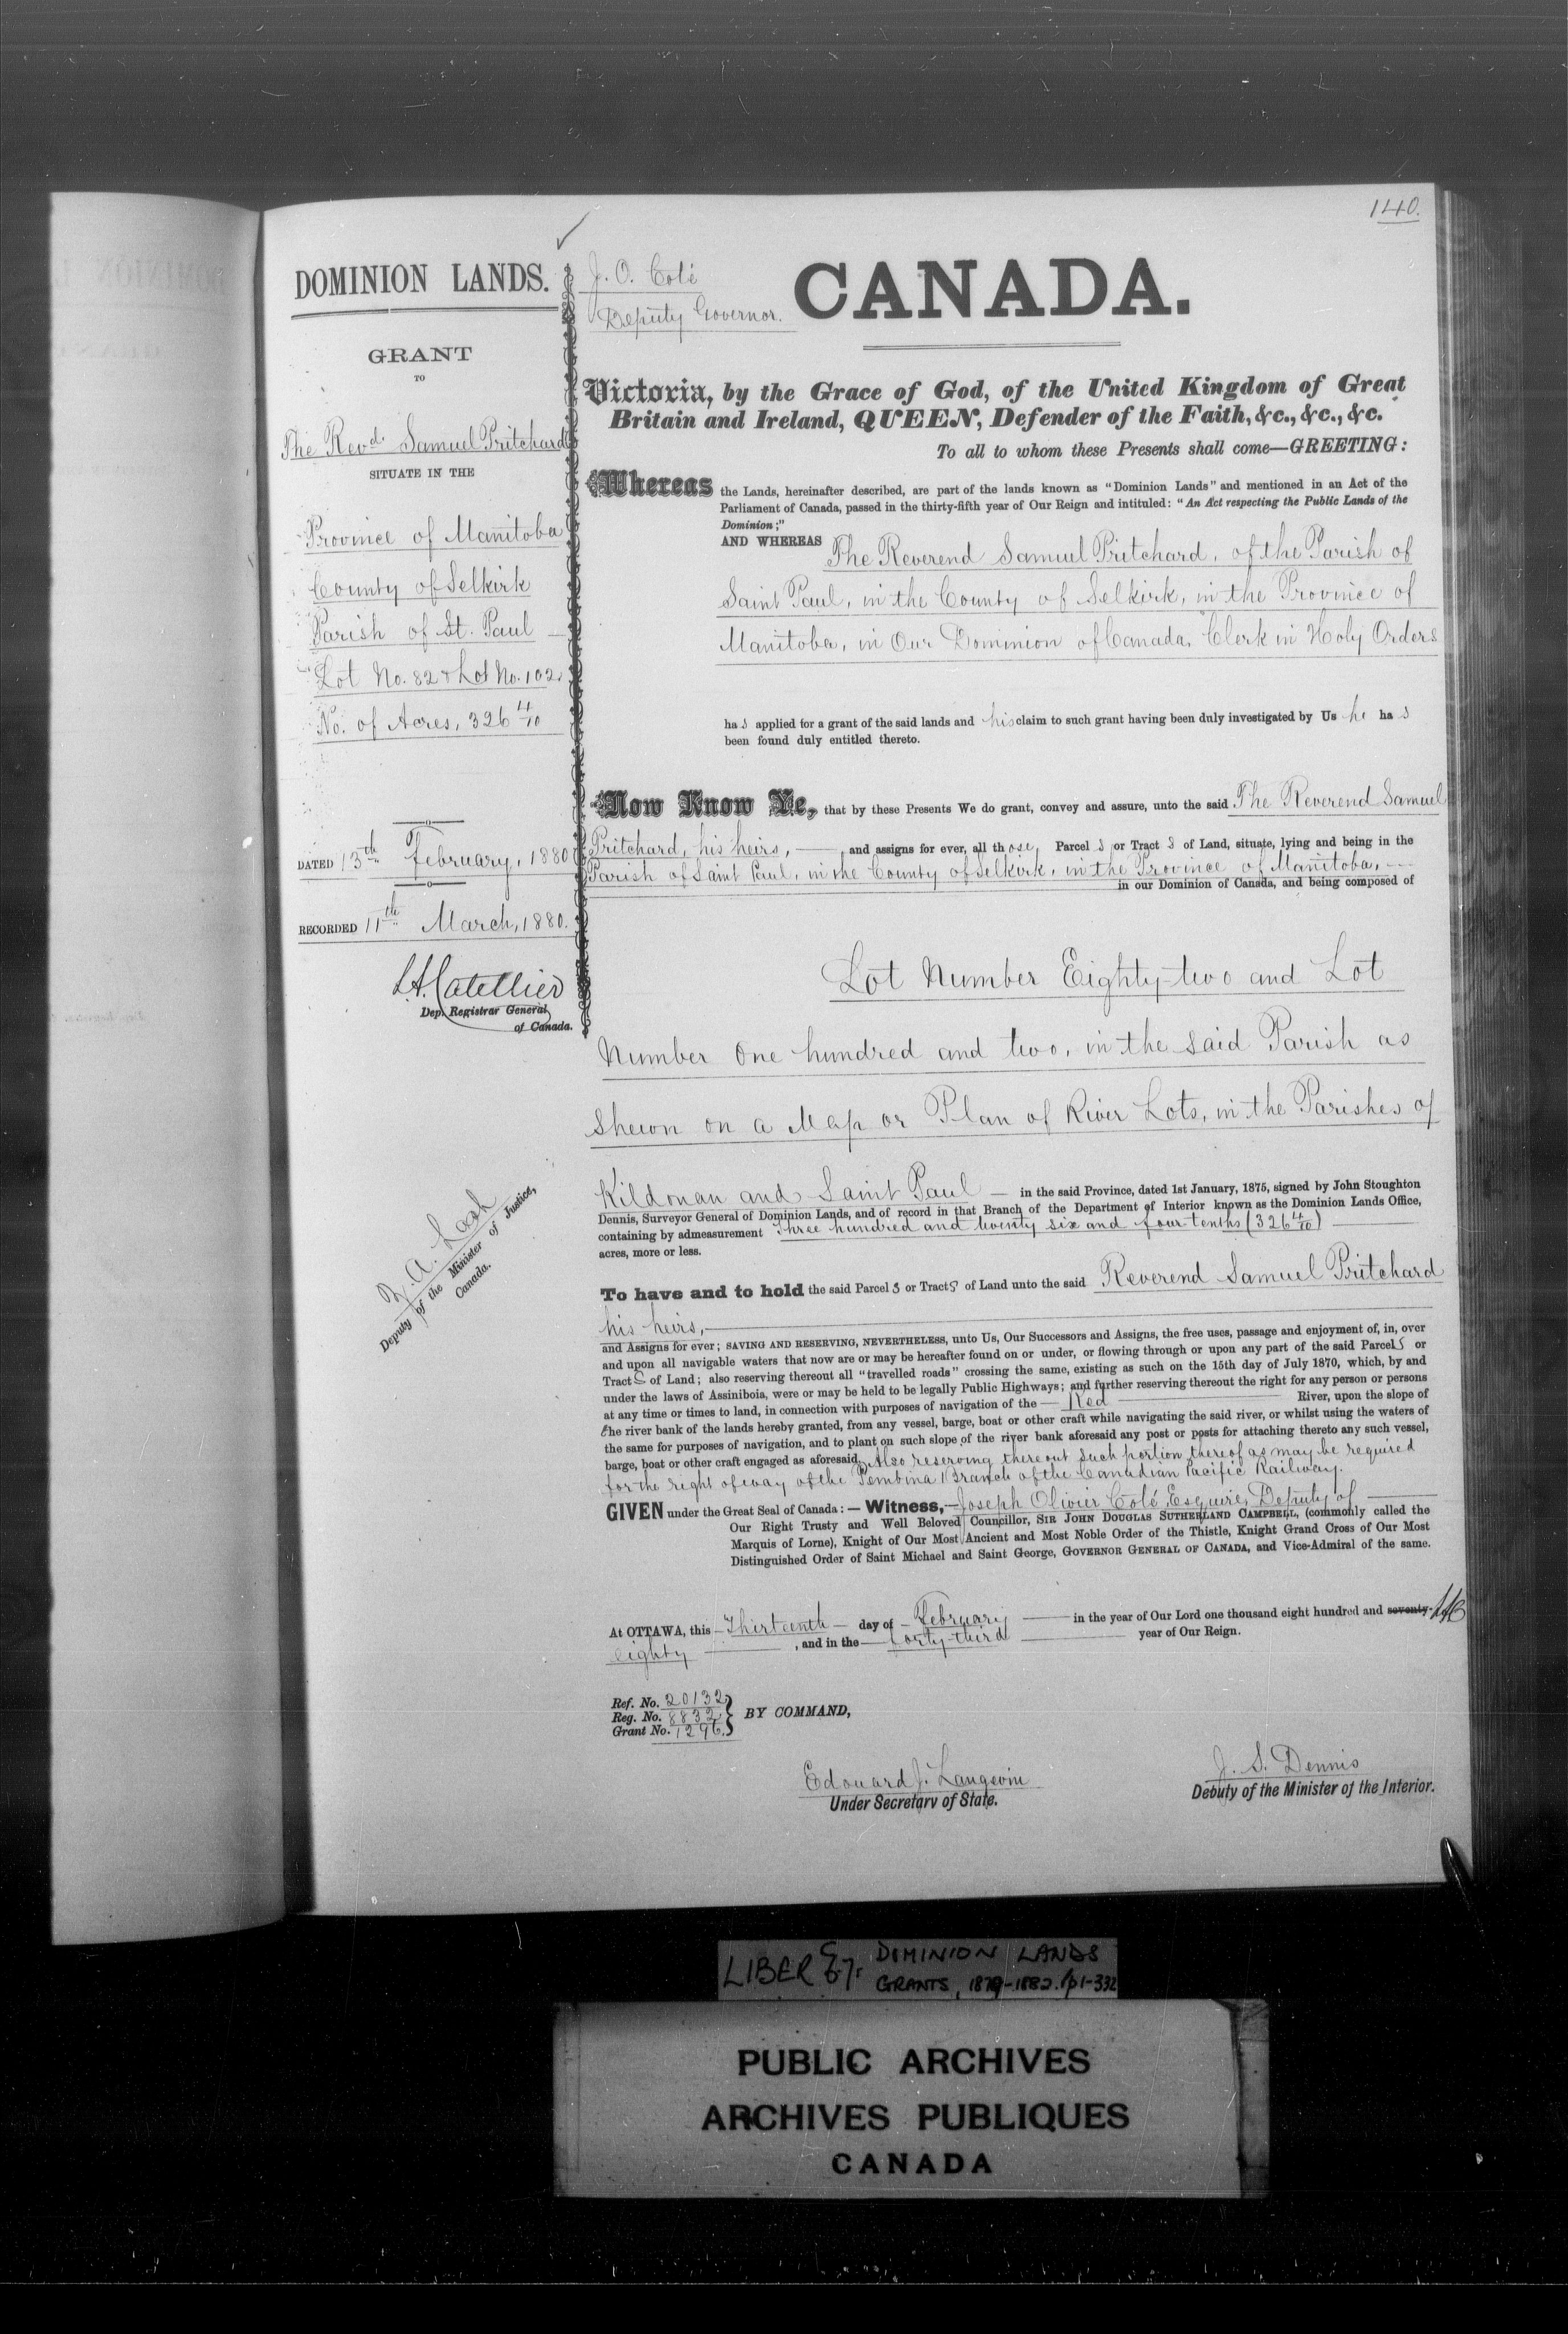 140.
DOMINION LANDS.
GRANT
TO
The Revd. Samuel Pritchard
SITUATE IN THE
Province of Manitoba
County of Selkirk
Parish of St. Paul
Lot No. 82 & Lot No. 102.
No. of Acres, 326 4/10
DATED 13th February, 1880
RECORDED 11th March, 1880.
L.A. Catellier
Dep. Registrar General
of Canada.
Z. A. Lash
Deputy of the Minister of Justice,
Canada.
J. O. Coté
Deputy Governor.
CANADA.
Victoria, by the Grace of God, of the United Kingdom of Great
Britain and Ireland, QUEEN, Defender of the Faith, &c., &c., &c.
To all to whom these Presents shall come—GREETING:
Whereas the Lands, hereinafter described, are part of the lands known as "Dominion Lands" and mentioned in an Act of the
Parliament of Canada, passed in the thirty-fifth year of Our Reign and intituled: "An Act respecting the Public Lands of the
Dominion;"
AND WHEREAS The Reverend Samuel Pritchard, of the Parish of
Saint Paul, in the County of Selkirk, in the Province of
Manitoba, in Our Dominion of Canada, Clerk in Holy Orders
has applied for a grant of the said lands and his claim to such grant having been duly investigated by Us he has
been found duly entitled thereto.
Now Know Ye, that by these Presents We do grant, convey and assure, unto the said The Reverend Samuel
Pritchard, his heirs, —, and assigns for ever, all those, Parcel s or Tract s of Land, situate, lying and being in the
Parish of Saint Paul, in the County of Selkirk, in the Province of Manitoba, —
in our Dominion of Canada, and being composed of
Lot Number Eighty-two and Lot
Number One hundred and two, in the said Parish as
shewn on a Map or Plan of River Lots, in the Parishes of
Kildonan and Saint Paul — in the said Province, dated 1st January, 1875, signed by John Stoughton
Dennis, Surveyor General of Dominion Lands, and of record in that Branch of the Department of Interior known as the Dominion Lands Office,
containing by admeasurement Three hundred and twenty six and four-tenths (326 4/10) —
acres, more or less.
To have and to hold the said Parcel s or Tract s of Land unto the said Reverend Samuel Pritchard
his heirs, —
and Assigns for ever; SAVING AND RESERVING, NEVERTHELESS, unto Us, Our Successors and Assigns, the free uses, passage and enjoyment of, in, over
and upon all navigable waters that now are or may be hereafter found on or under, or flowing through or upon any part of the said Parcel s or
Tract s of Land; also reserving thereout all "travelled roads" crossing the same, existing as such on the 15th day of July 1870, which, by and
under the laws of Assiniboia, were or may be held to be legally Public Highways; and further reserving thereout the right for any person or persons
at any time or times to land, in connection with purposes of navigation of the — Red — River, upon the slope of
the river bank of the lands hereby granted, from any vessel, barge, boat or other craft while navigating the said river, or whilst using the waters of
the same for purposes of navigation, and to plant on such slope of the river bank aforesaid any post or posts for attaching thereto any such vessel,
barge, boat or other craft engaged as aforesaid. Also reserving thereout such portion thereof as may be required
for the right of way of the Pembina Branch of the Canadian Pacific Railway.
GIVEN under the Great Seal of Canada: — Witness, — Joseph Olivier Coté, Esquire, Deputy of —
Our Right Trusty and Well Beloved Councillor, SIR JOHN DOUGLAS SUTHERLAND CAMPBELL, (commonly called the
Marquis of Lorne), Knight of Our Most Ancient and Most Noble Order of the Thistle, Knight Grand Cross of Our Most
Distinguished Order of Saint Michael and Saint George, GOVERNOR GENERAL OF CANADA, and Vice-Admiral of the same.
At OTTAWA, this — Thirteenth — day of — February — in the year of Our Lord one thousand eight hundred and seventy-
eighty —, and in the — forty-third — year of Our Reign.
Ref. No. 20132
Reg. No. 8832
Grant No. 1296.
BY COMMAND,
Edouard J. Langevin
Under Secretary of State.
J. S. Dennis
Deputy of the Minister of the Interior.
LIBER
DOMINION LANDS
GRANTS, 1879-1882. pp1-332
PUBLIC ARCHIVES
ARCHIVES PUBLIQUES
CANADA